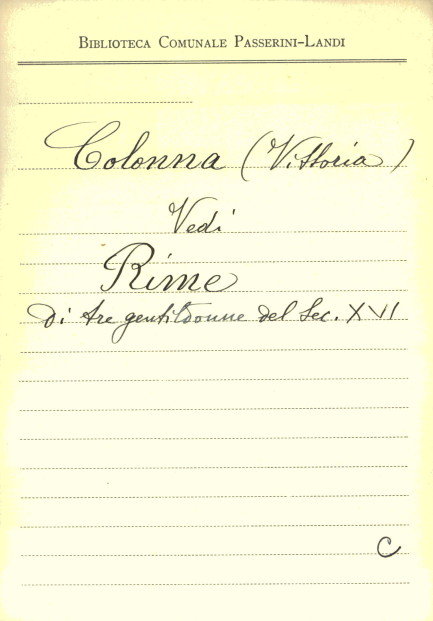 Biblioteca Comunale Passerini-Landi
Colonna (Vittoria)
Vedi
Rime
di tre gentildonne del Sec. XVI
C